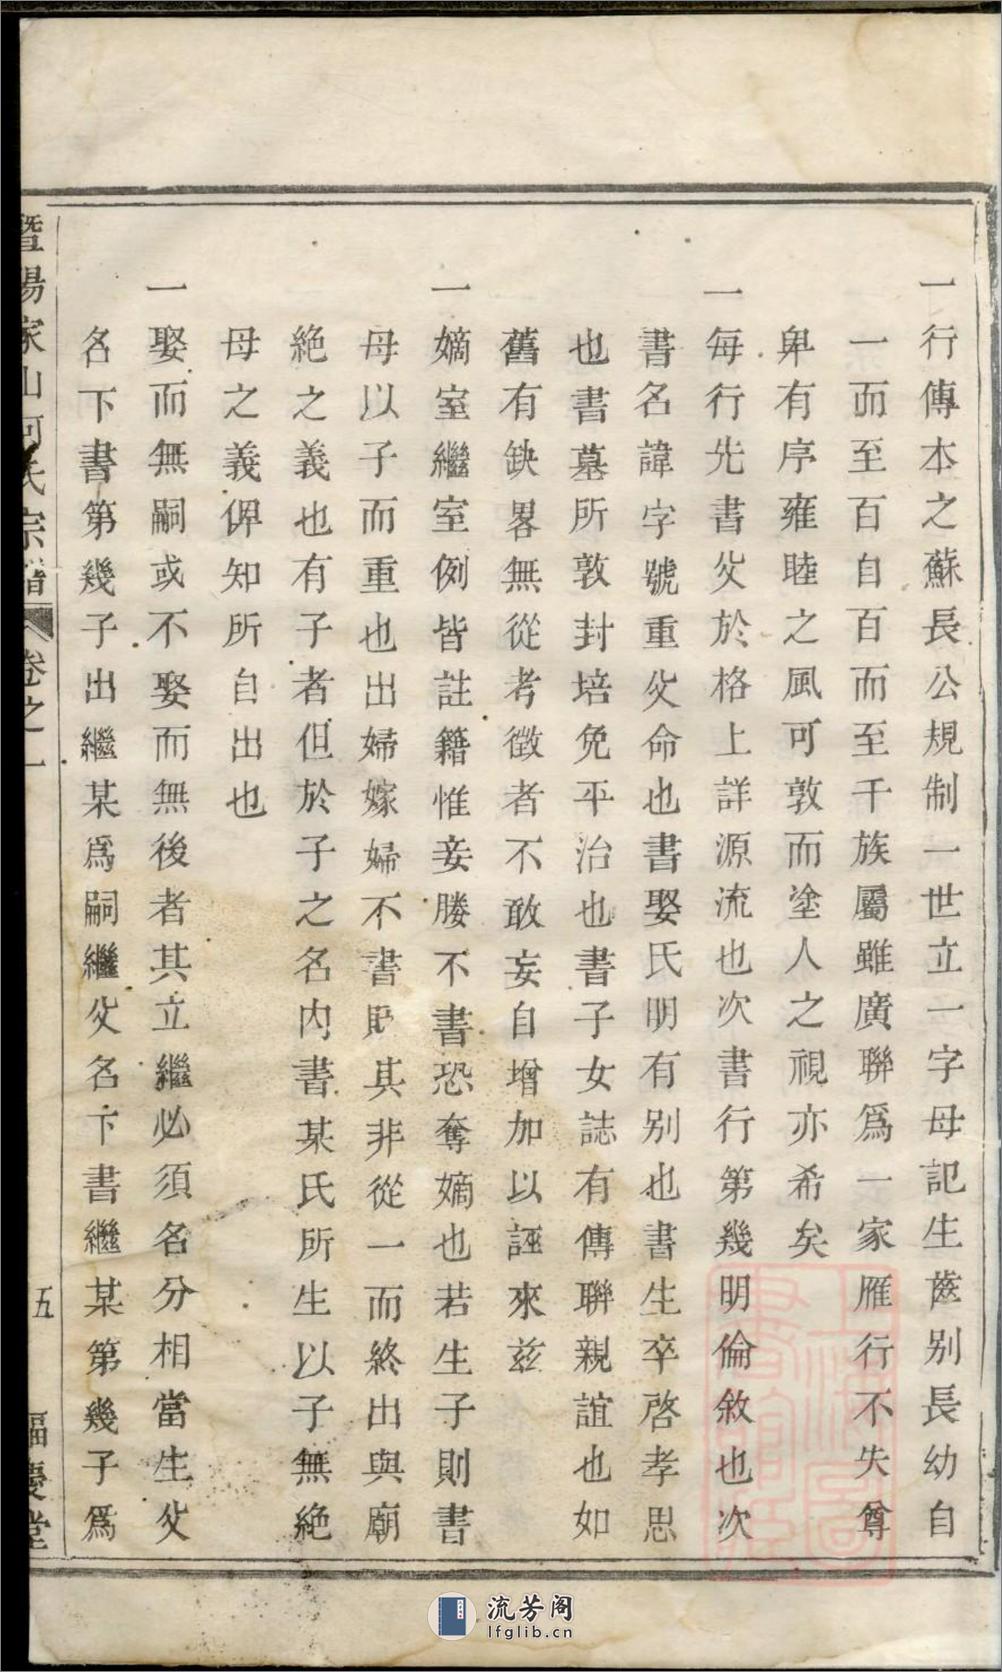 一行傳本之蘇長公規制一世立一字母記生齒别長幼自
一而至百自百而至千族屬雖廣聯爲一家雁行不失尊
卑有序雍睦之風可敦而塗人之視亦希矣
一每行先書父於格上詳源流也次書行第幾明倫敘也次
書名諱字號重父命也書娶氏明有别也書生卒啓孝思
也書墓所敦封培免平治也書子女誌有傳聯親誼也如
舊有缺畧無從考徵者不敢妄自增加以誣來兹
一嫡室繼室例皆註籍惟妾媵不書恐奪嫡也若生子則書
母以子而重也出婦嫁婦不書貶其非從一而終出與廟
絶之義也有子者但於子之名内書某氏所生以子無絶
母之義俾知所自出也
一娶而無嗣或不娶而無後者其立繼必須名分相當生父
名下書第幾子出繼某爲嗣繼父名下書繼某第幾子爲
暨陽家山何氏宗譜 卷之一 五 福慶堂
上海圖書館藏
流芳阁
lfglib.cn